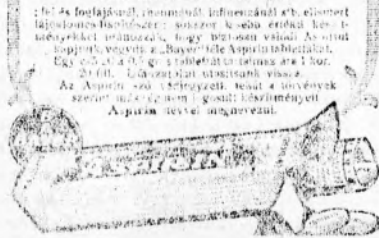 fej és fogfájásnál, reumánál, influenzánál stb. elismert
fájdalomcsillapítószert sokszor kisebb értékű készít-
ményekkel utánozzák, hogy biztosan valódi Aspirint
kapjunk, vegyük a „Bayer" féle Aspirin tablettákat.
Egy cső 20 à 0,5 gr.-s tablettát tartalmaz ára 1 kor.
20 fill. utasítsunk vissza.
Az Aspirin szó védjegyzett, tehát a törvények
szerint más cég nem jogosult készítményeit
Aspirin névvel megnevezni.
Aspirin